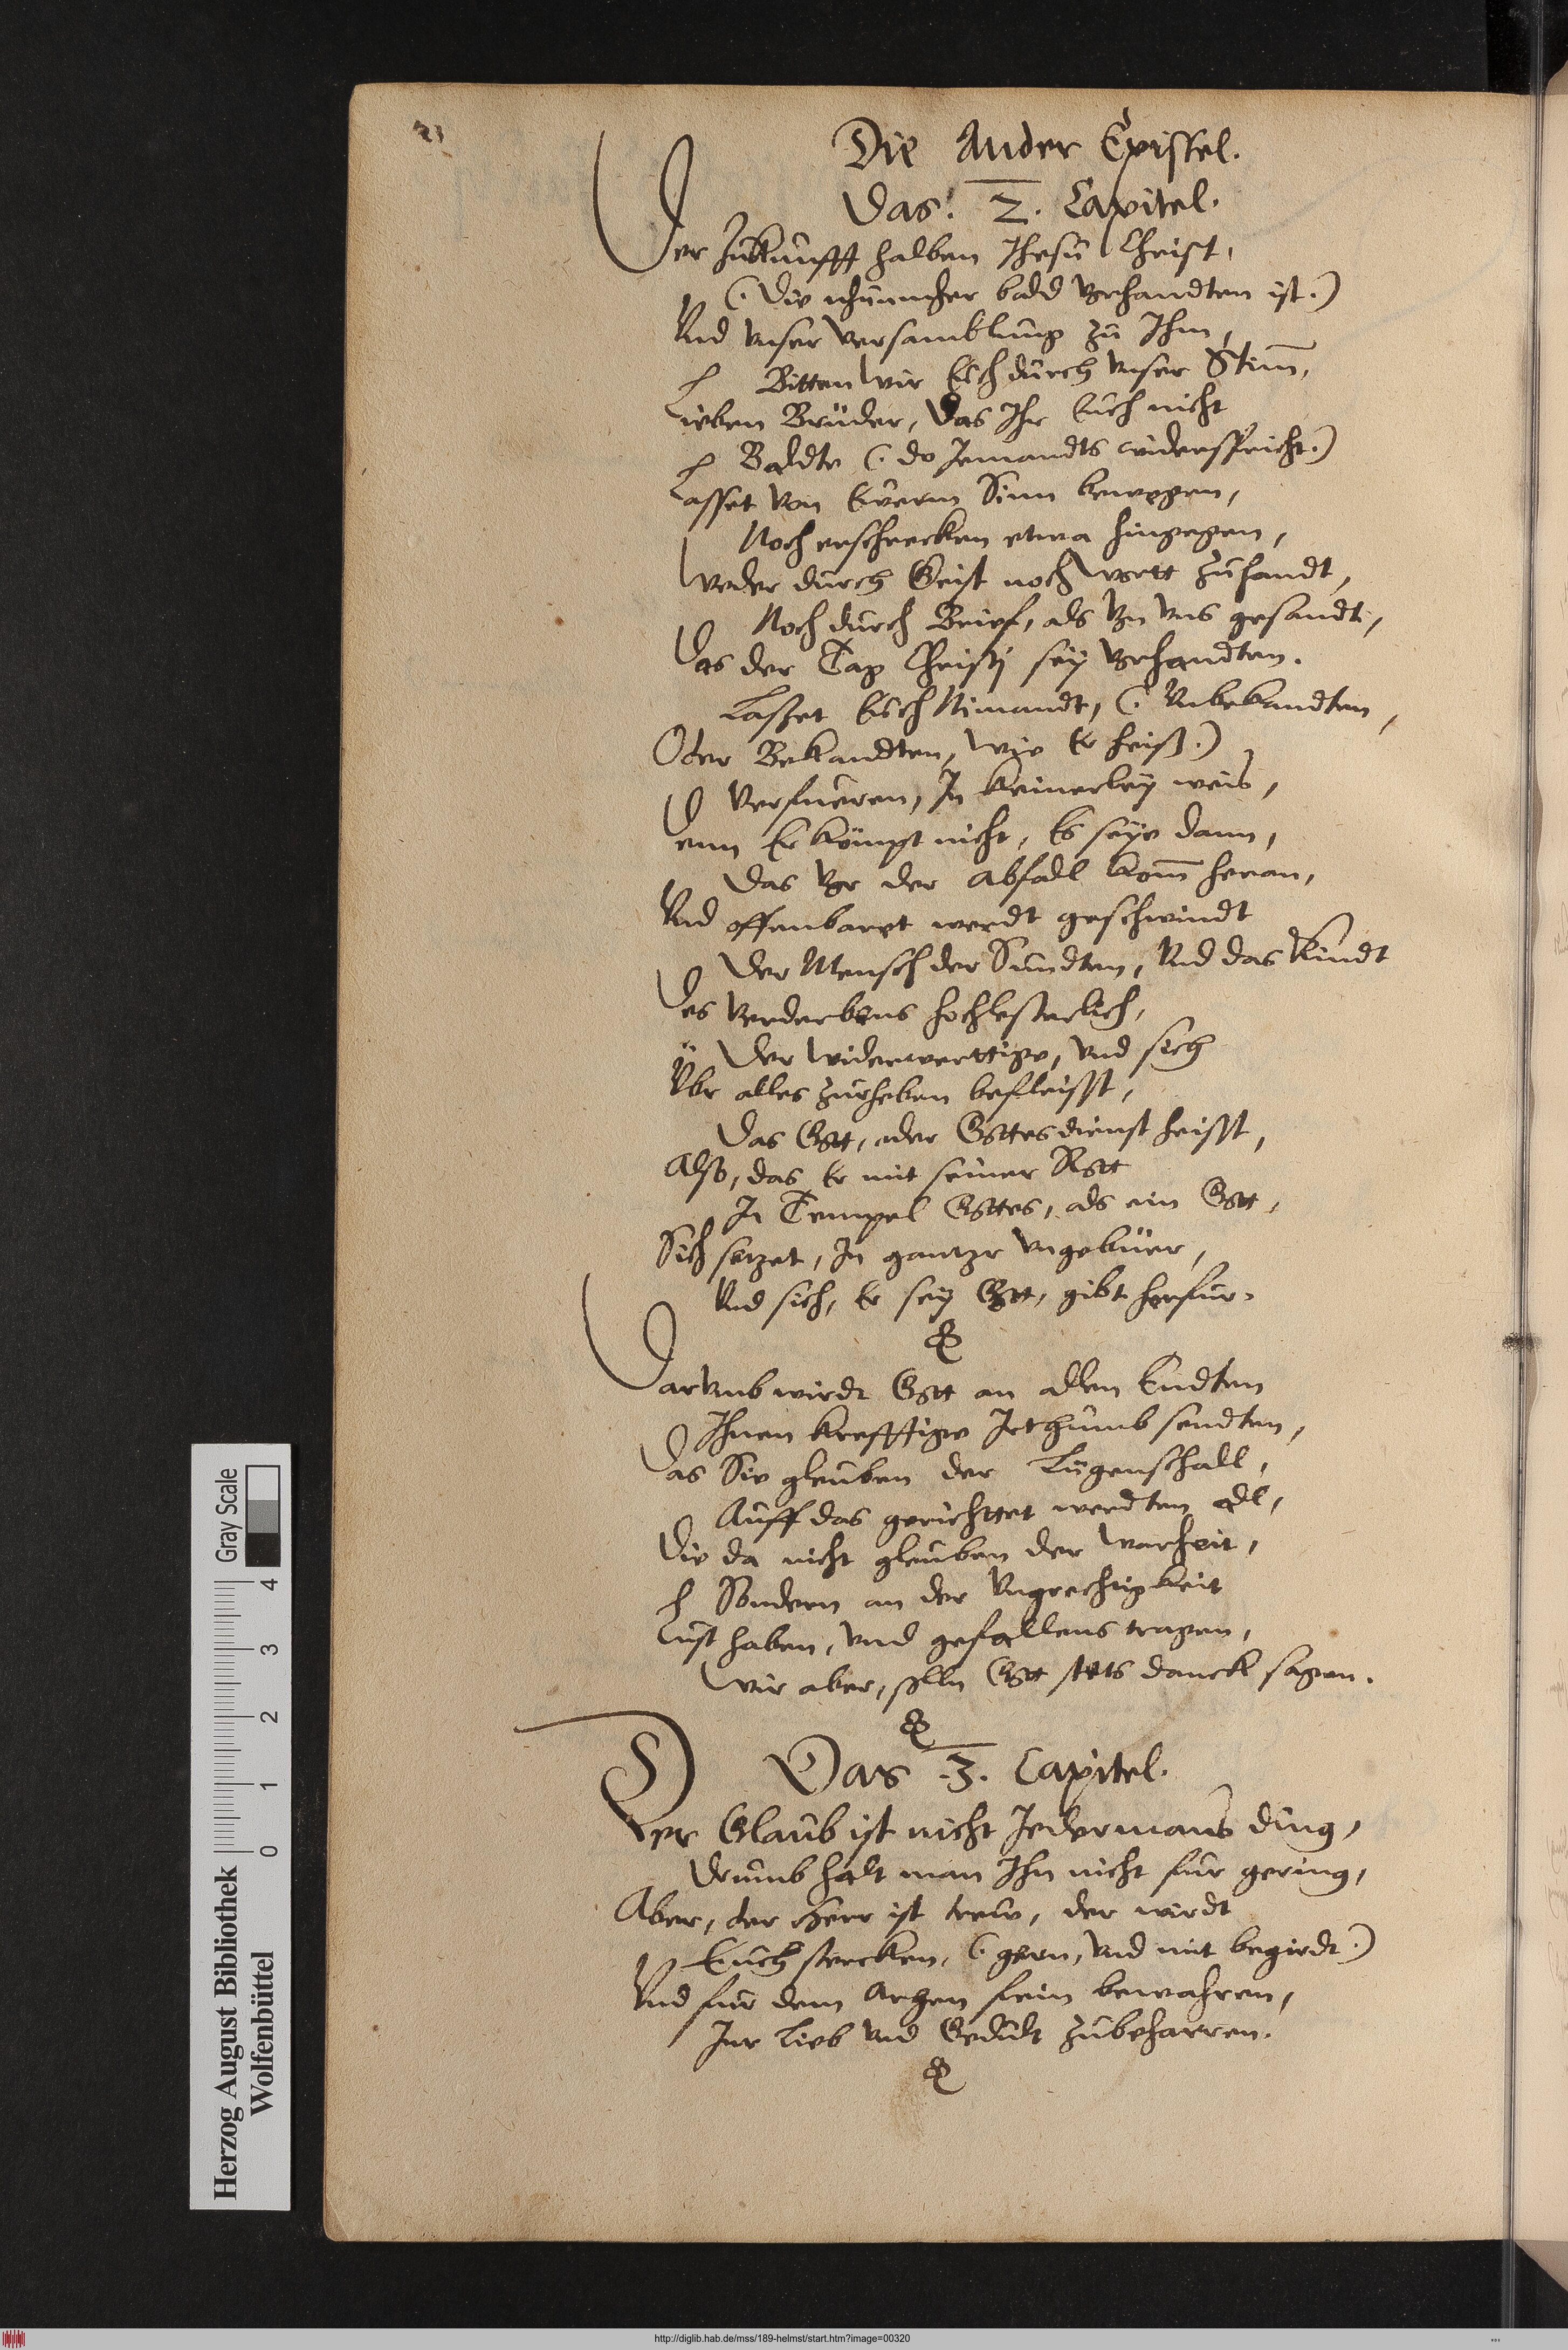 Die Ander Epistel.
Das. 2. Capitel.
Der Zukunfft halben Jhesu Christ,
(. Die nhunmher bald vorhandten ist.)
Vnd vnser versamblung zu Jhm,
Bitten wir Euch durch vnser Stim̄,
Lieben Brüder, Das Jhr Euch nicht
Baldte (. do Jemandts widerspricht.)
Lasset von Ewerm Sinn bewegen,
Noch erschrecken etwa hingegen,
Weder durch Geist noch wortt zuhandt,
Noch durch Brief, als von vns gesandt,
Das der Tag Christj seÿ vorhandten.
Laßet Euch Nimandt, (. Vnbekandten,
Oder Bekandten, wie Er heiß.)
Verfueren, Jn keinerleÿ weis,
Denn Er kömpt nicht, Es seÿe dann,
Das vor der abfall kom̄ heran,
Vnd offenbaret werdt geschwindt
Der Mensch der Sundten, Vnd das Kindt
Des Verderbens hochlesterlich,
Der widerwerttige, vnd sich
Vbr alles zurheben befleisst,
Das Gott, oder Gottesdienst heisst,
Also, das Er mit seiner Rott
Jn Tempel Gottes, als ein Gott,
Sich setzet, Jn gantzr vngebüer,
Vnd sich, Er seÿ Gott, gibt herfur.
Darumb wirdt Gott an allen Endten
Jhnen krefftige Jrthumb sendten,
Das Sie gleuben der Lügenschall,
Auff das gerichttet werdten all,
Die da nicht gleuben der warheit,
Sondern an der Vngrechtigkeit
Lust haben, vnd gefallens tragen,
Wir aber, solln Gott stets danck sagen.
Das .3. Capitel.
Der Glaub ist nicht Jedermans ding,
Drumb halt man Jhn nicht fur gering,
Aber, der Herr ist trew, der wirdt
Euch stercken, (. gern, vnd mit begirdt.)
Vnd fur dem Argen fein bewahren,
Jnr Lieb vnd Gedult zubeharren.
Herzog August Bibliothek
Wolfenbüttel
0 1 2 3 4
Gray Scale
http://diglib.hab.de/mss/189-helmst/start.htm?image=00320